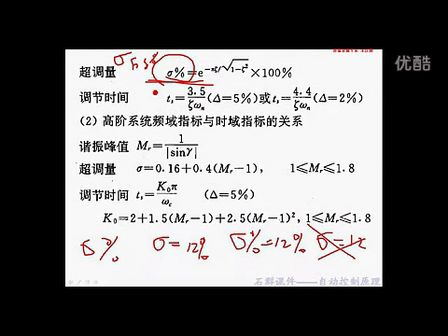 优酷
σ
超调量 σ%=e^{-πζ/√(1-ζ²)}×100%
调节时间 t_s=3.5/(ζω_n)(Δ=5%)或t_s=4.4/(ζω_n)(Δ=2%)
(2) 高阶系统频域指标与时域指标的关系
谐振峰值 M_r=1/|sinγ|
超调量 σ=0.16+0.4(M_r-1), 1≤M_r≤1.8
调节时间 t_s=K_0π/ω_c (Δ=5%)
K_0=2+1.5(M_r-1)+2.5(M_r-1)², 1≤M_r≤1.8
σ% σ=12% σ%=12%
石群课件——自动控制原理